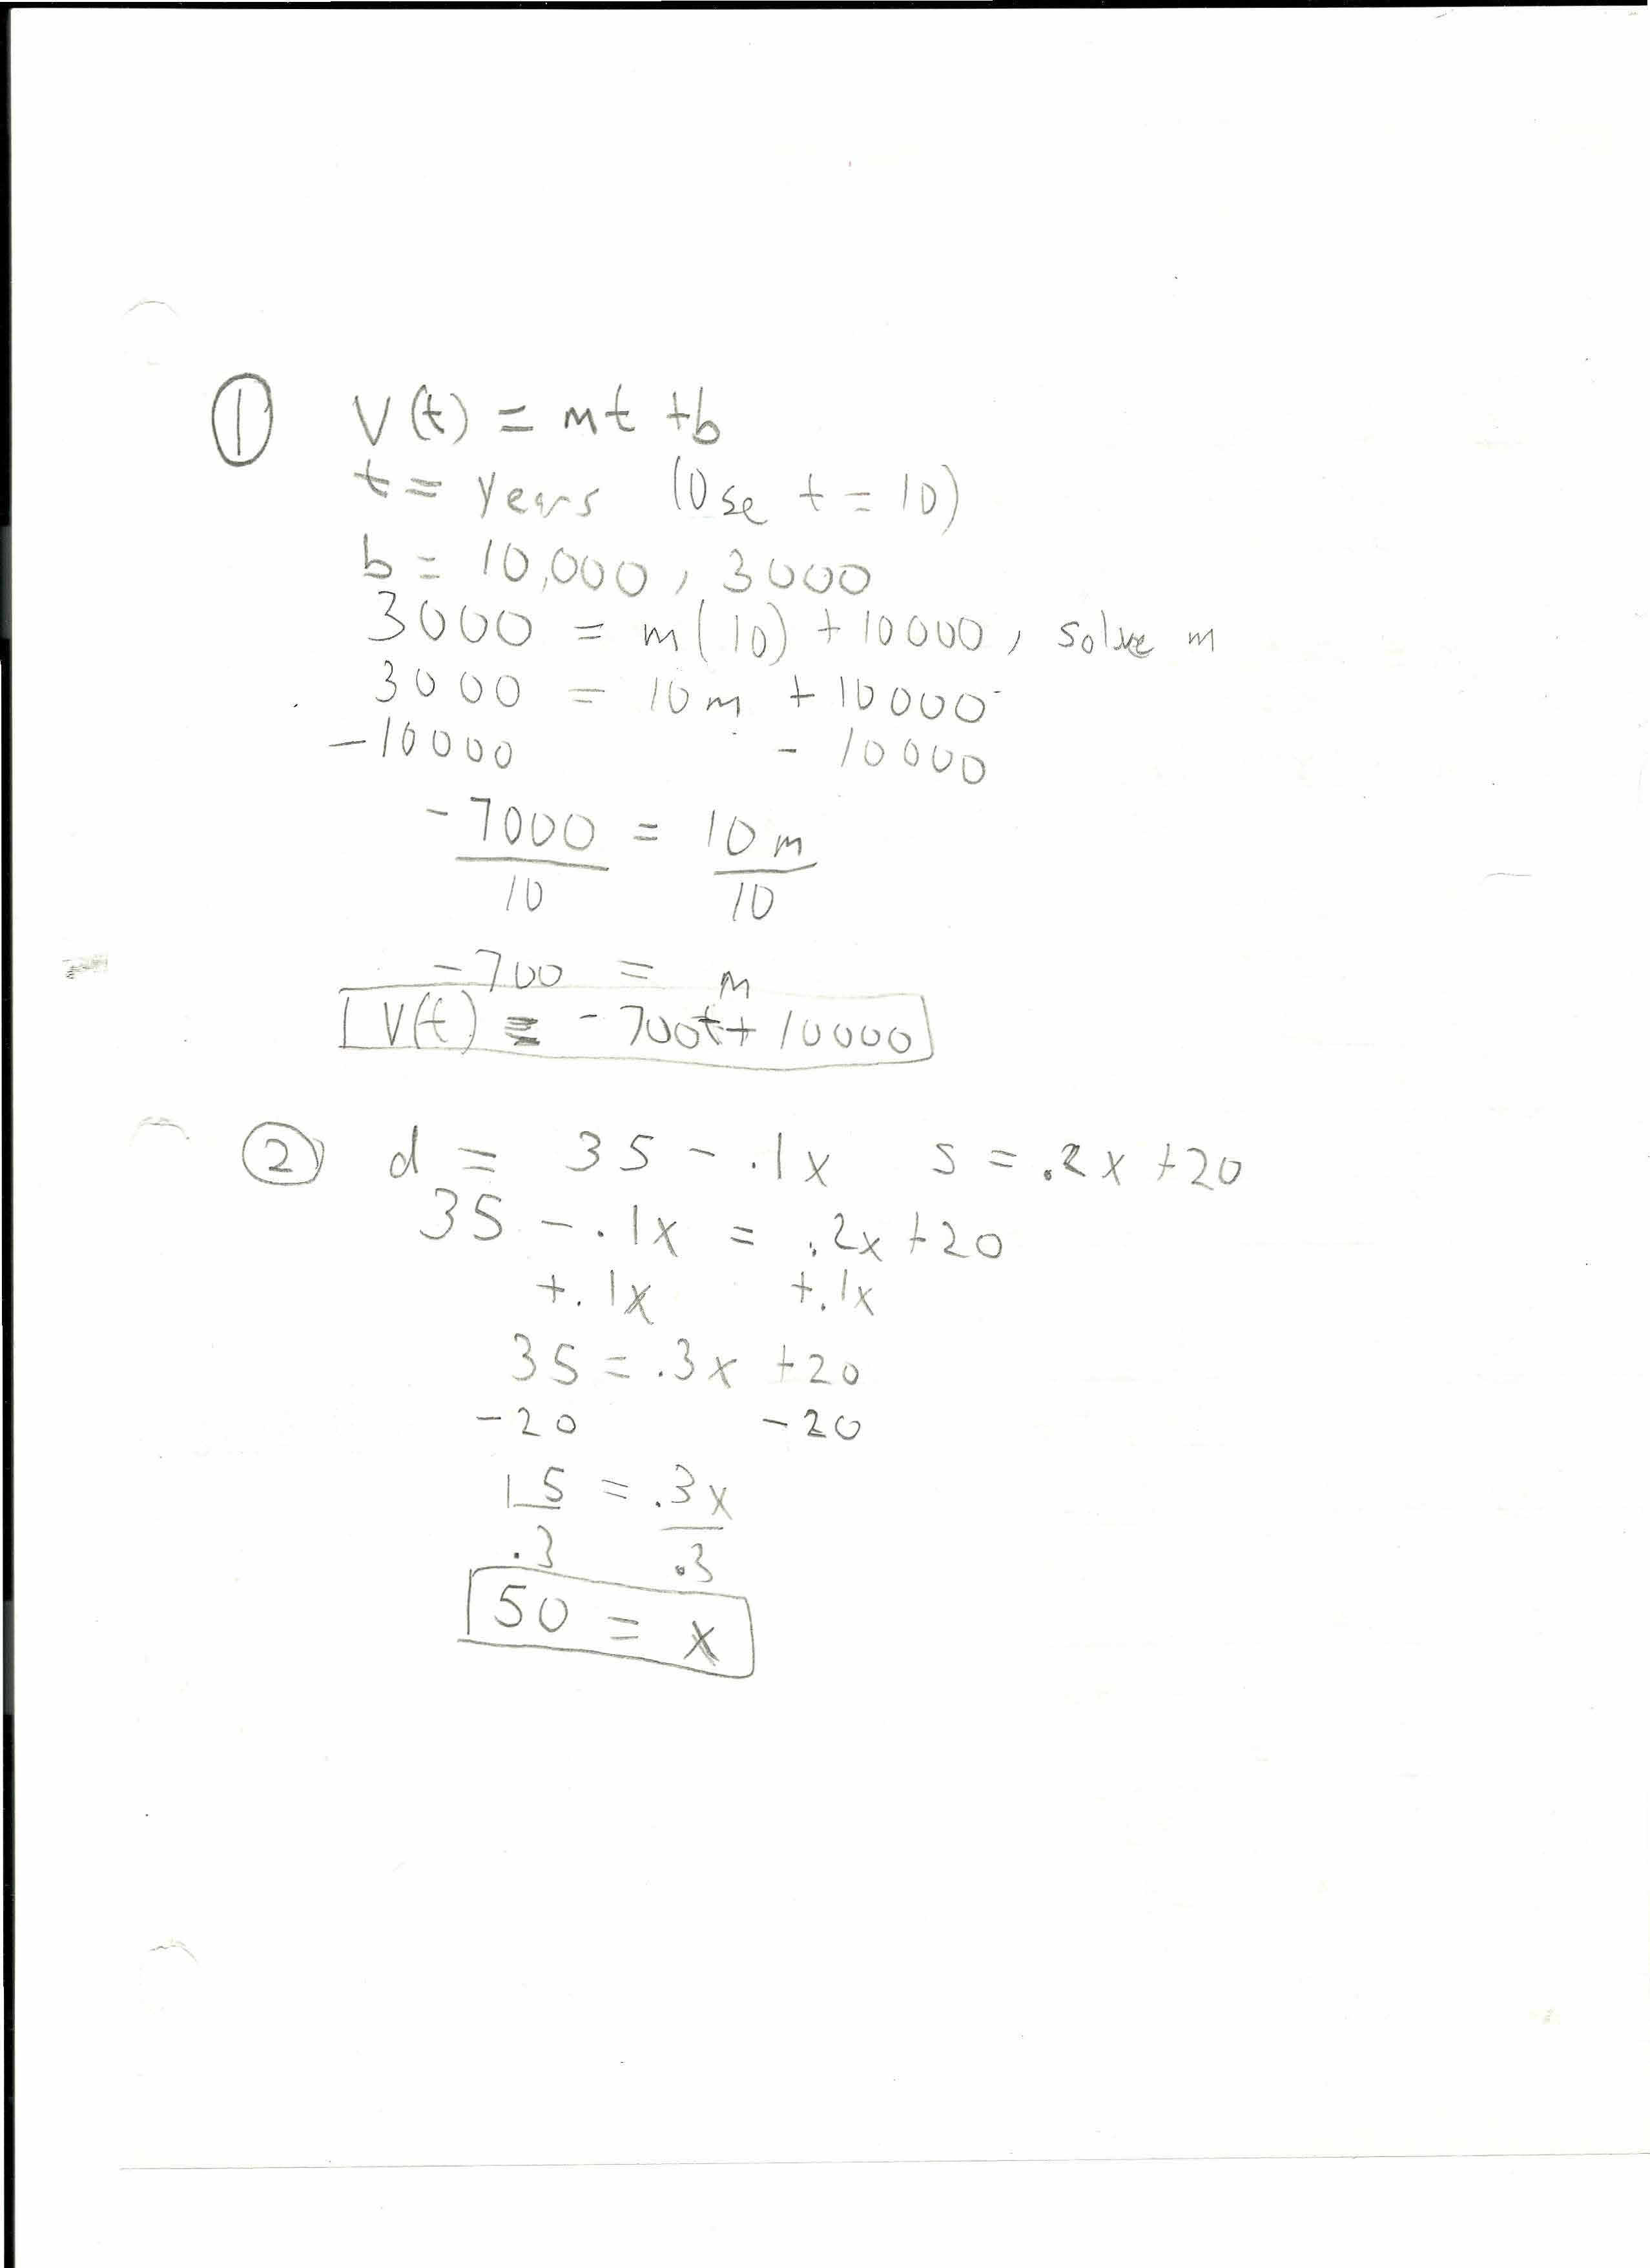 ① V(t) = mt + b
t = years (Use t = 10)
b = 10,000, 3000
3000 = m(10) + 10000, solve m
3000 = 10m + 10000
-10000 - 10000
-7000 = 10m
10 10
-700 = m
V(t) = -700t + 10000
② d = 35 - .1x s = .2x + 20
35 - .1x = .2x + 20
+.1x +.1x
35 = .3x + 20
-20 -20
15 = .3x
.3 .3
50 = x